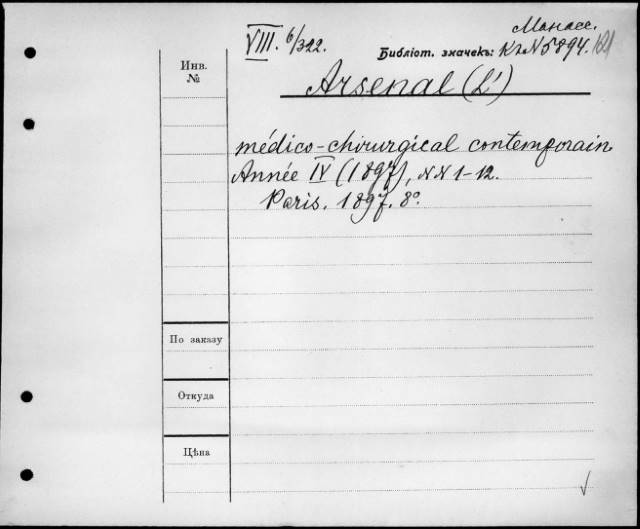 Манасс.
VIII. 6/322.
Библіот. значекъ: Кг№5894.
Инв.
№
Arsenal (L')
médico-chirurgical contemporain
Année IV (1897), NN 1-12.
Paris. 1897. 8°.
По заказу
Откуда
Цѣна